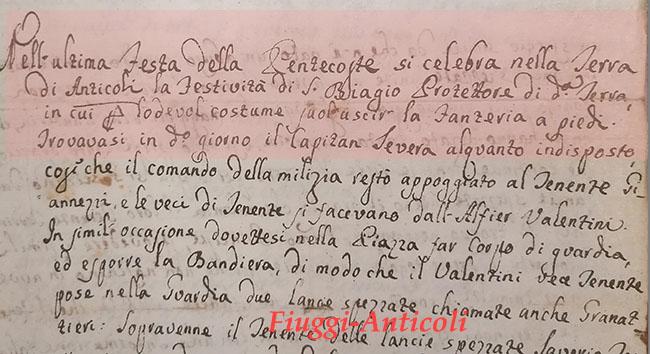 Nell'ultima Festa della Pentecoste si celebra nella Terra
di Anticoli la Festività di S. Biagio Protettore di d.ª Terra,
in cui lodevol costume suol uscir la Fanteria a piedi.
Trovavasi in d.º giorno il Capitan Severa alquanto indisposto,
cosi che il comando della milizia restò appoggiato al Tenente Gi-
annezzi, e le veci di Tenente si facevano dall'Alfier Valentini.
In simil'occasione dovettesi nella Piazza far Corpo di guardia,
ed esporre la Bandiera, di modo che il Valentini Vece Tenente
pose nella Guardia due lancie spezzate chiamate anche Granat-
tieri: Sopravenne il Tenente delle lancie spezzate
Fiuggi-Anticoli